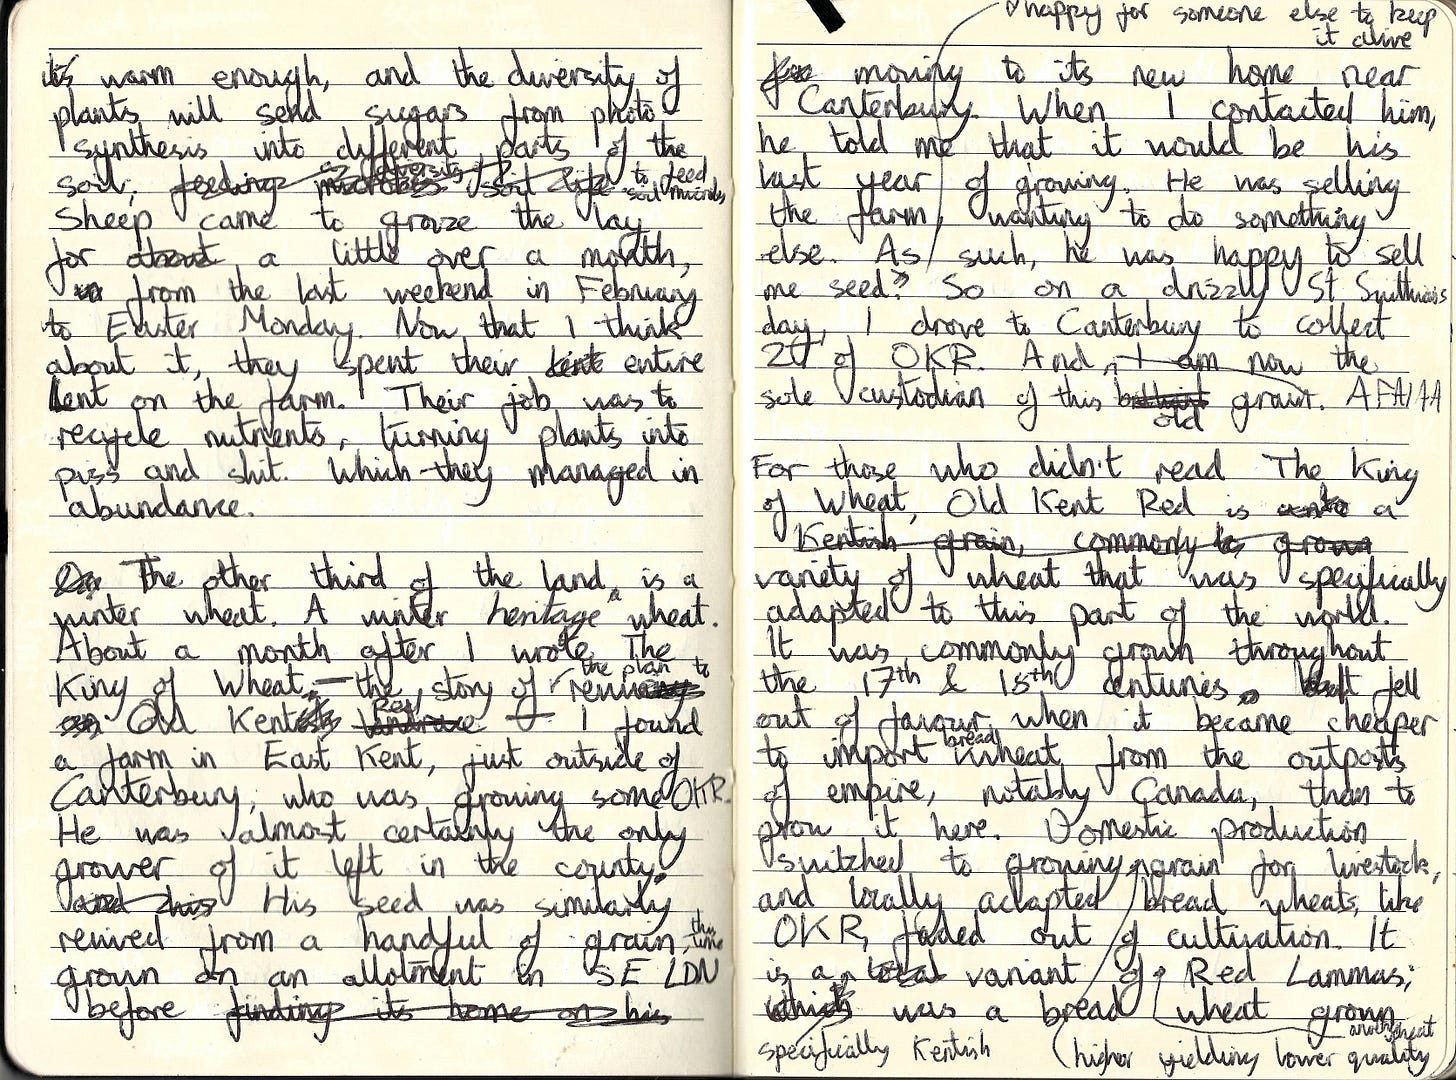 it's warm enough, and the diversity of
plants will send sugars from photo
synthesis into different parts of the
soil, feeding microbes soil life to feed
diversity
soil microbes
Sheep came to graze the lay
for about a little over a month,
from the last weekend in February
to Easter Monday. Now that I think
about it, they spent their lent entire
Lent on the farm. Their job was to
recycle nutrients, turning plants into
piss and shit. Which they managed in
abundance.
The other third of the land, is a
winter wheat. A winter heritage wheat.
About a month after I wrote The
the plan to
King of Wheat, — the story of reviving
Red
Old Kentish landrace — I found
a farm in East Kent, just outside of
Canterbury, who was growing some OKR.
He was almost certainly the only
grower of it left in the county.
and his His seed was similarly
revived from a handful of grain, this time
grown on an allotment in SE LDN
before finding its home on his
happy for someone else to keep
it alive
moving to its new home near
Canterbury. When I contacted him,
he told me that it would be his
last year of growing. He was selling
the farm, wanting to do something
else. As such, he was happy to sell
me seed. So on a drizzly St Swithuns
day, I drove to Canterbury to collect
2t of OKR. And, I am now the
sole custodian of this grain. AFAIAA
old
For those who didn't read The King
of Wheat, Old Kent Red is a
Kentish grain, commonly grown
variety of wheat that was specifically
adapted to this part of the world.
It was commonly grown throughout
the 17th & 18th centuries, but fell
out of favour when it became cheaper
bread
to import wheat from the outposts
of empire, notably Canada, than to
grow it here. Domestic production
switched to growing grain for livestock,
and locally adapted bread wheats, like
OKR, faded out of cultivation. It
is a local variant of Red Lammas;
which was a bread wheat grown
another wheat
specifically Kentish
(higher yielding lower quality